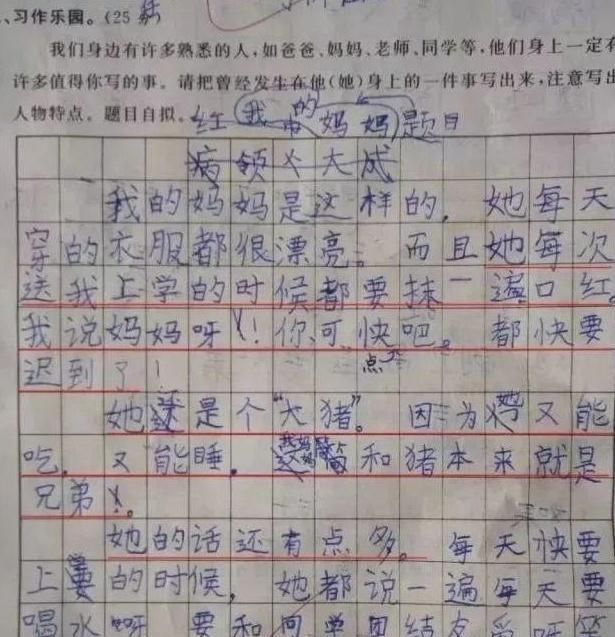 、习作乐园。(25
我们身边有许多熟悉的人,如爸爸、妈妈、老师、同学等,他们身上一定有
许多值得你写的事。请把曾经发生在他(她)身上的一件事写出来,注意写出
人物特点。题目自拟。
我的妈妈 题目
我的妈妈是这样的,她每天
穿的衣服都很漂亮。而且她每次
送我上学的时候都要抹一遍口红
我说妈妈呀!你可快点吧。都快要
迟到了!
她还是个“大猪”。因为她又能
吃,又能睡。和猪本来就是
兄弟。
她的话还有点多。每天快要
上学的时候,她都说一遍每天要
喝水呀要和同学团结友爱呀等